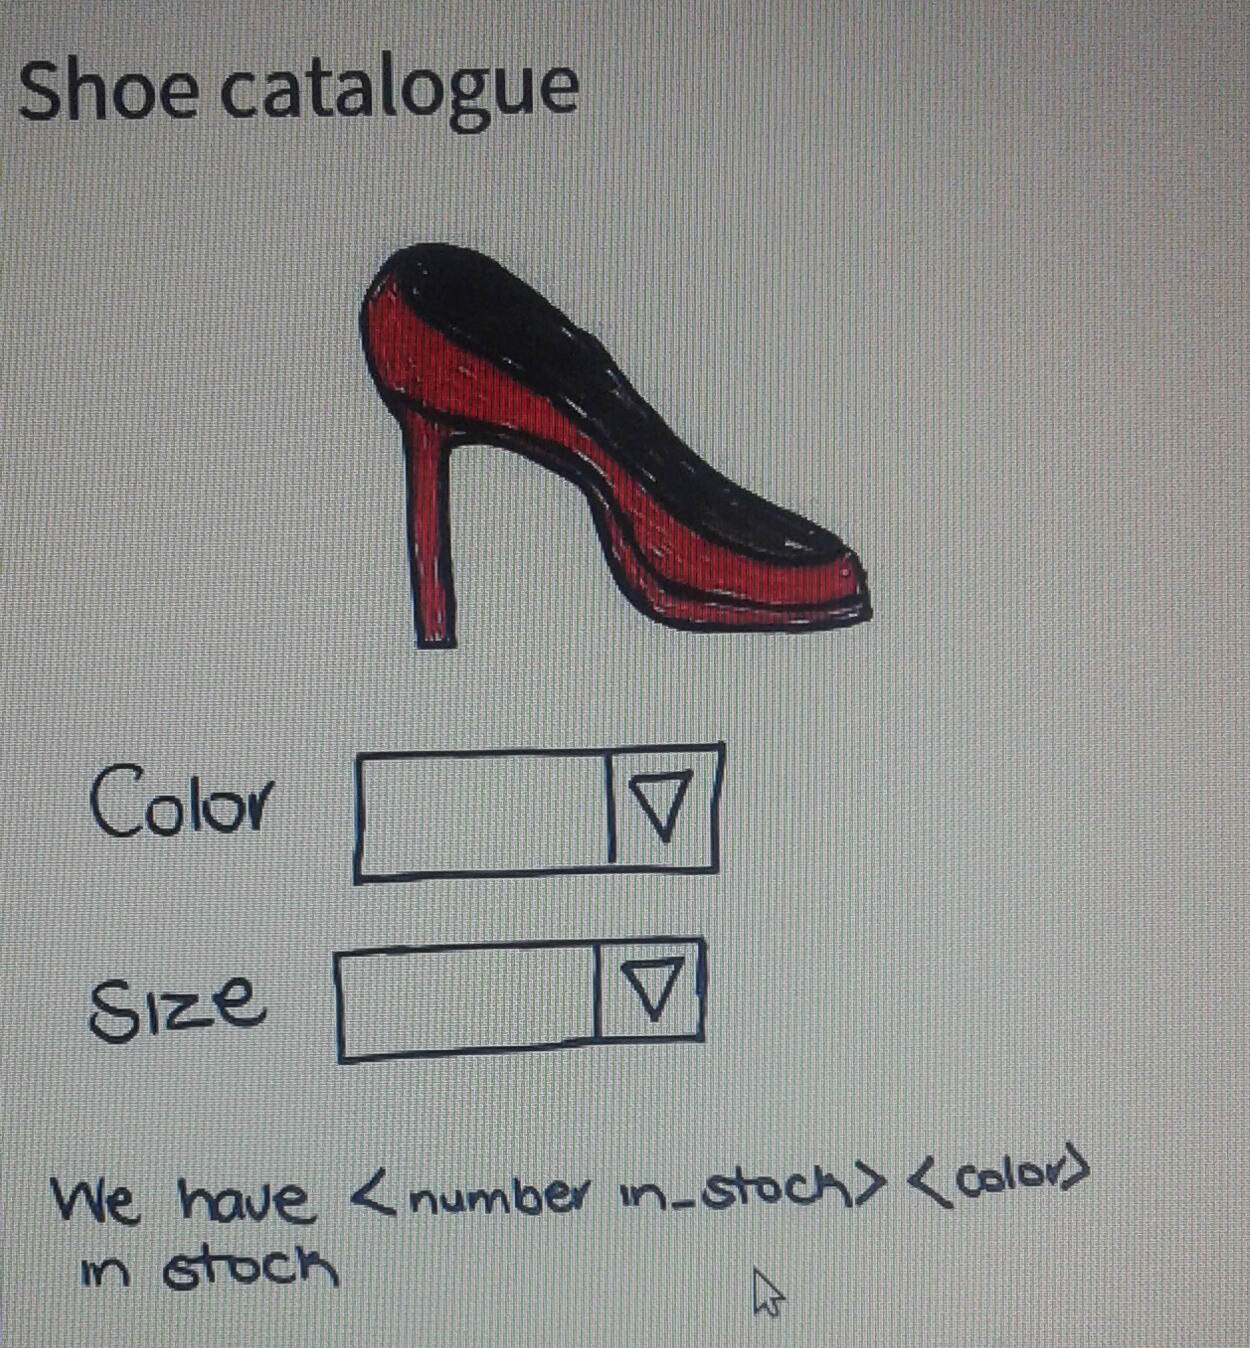 Shoe catalogue
Color
Size
We have <number in_stock> <color>
in stock